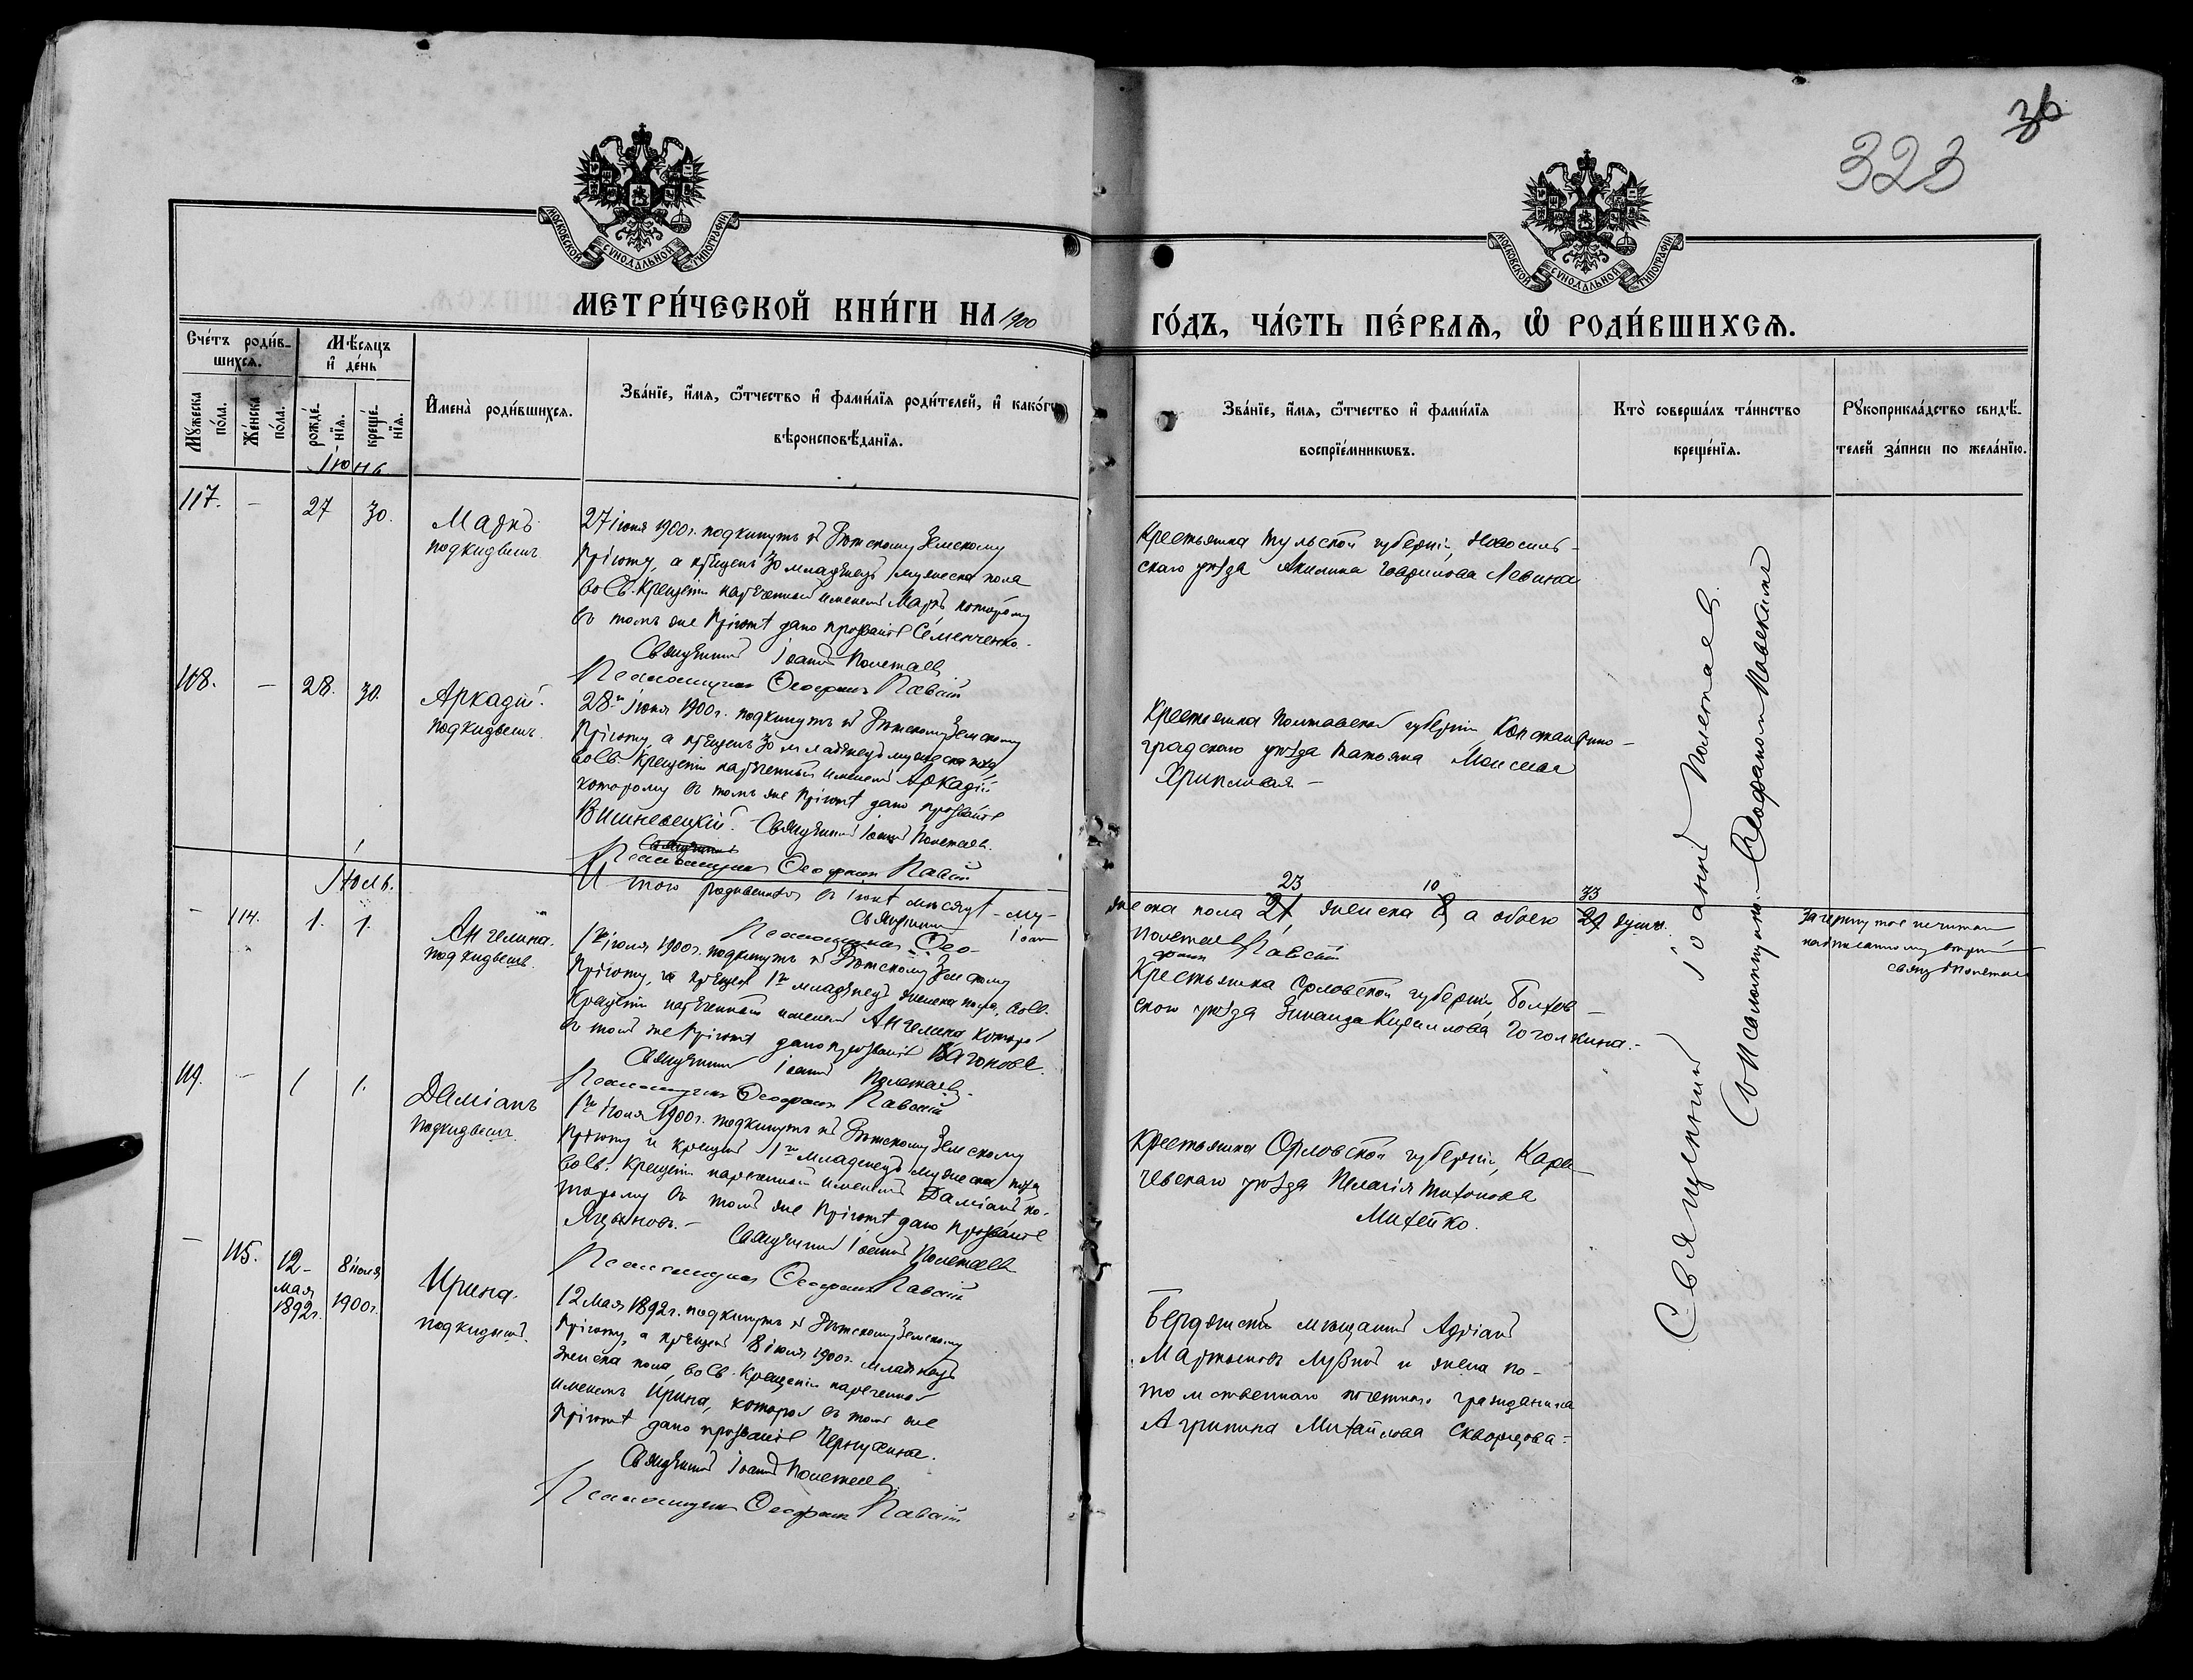 36
323
МОСКОВСКОЙ СѴНОДАЛЬНОЙ ТИПОГРАФІИ
МОСКОВСКОЙ СѴНОДАЛЬНОЙ ТИПОГРАФІИ
МЕТРИ́ЧЕСКОЙ КНИ́ГИ НА 1900
ГО́ДЪ, ЧА́СТЬ ПЕ́РВАѦ, Ѽ РОДИ́ВШИХСѦ.
Сче́тъ роди́в-
шихсѧ.
Мѣ́сѧцъ
и҆ де́нь
Мꙋ́жеска
по́ла.
Же́нска
по́ла.
рожде́-
нїѧ.
креще́-
нїѧ.
И҆мена̀ роди́вшихсѧ.
Зва́нїе, и҆́мѧ, ѻ҆́тчество и҆ фами́лїѧ роди́телей, и҆ како́гѡ
вѣроисповѣ́данїѧ.
Зва́нїе, и҆́мѧ, ѻ҆́тчество и҆ фами́лїѧ
воспрїе́мникѡвъ.
Кто̀ соверша́лъ та́инство
креще́нїѧ.
Рꙋкоприкла́дство свидѣ́-
телей за́писи по жела́нїю.
Іюнь
117. - 27 30.
Маркъ
подкидышъ.
27 іюня 1900г. подкинутъ къ Дѣтскому Земскому
Пріюту, а крещенъ 30 младенецъ мужеска пола
во Св. Крещеніи нареченный именемъ Маркъ которому
въ томъ же Пріютѣ дано прозваніе Семенченко.
Священникъ Іоаннъ Полетаевъ
Псаломщикъ Ѳеофанъ Павскій
Крестьянка Тульской губерніи, Новосиль-
скаго уѣзда Акилина Гаврилова Левина
118. - 28. 30.
Аркадій.
подкидышъ.
28го іюня 1900г. подкинутъ къ Дѣтскому Земскому
Пріюту, а крещенъ 30 младенецъ мужеска пола,
во Св. Крещеніи нареченный именемъ Аркадій
которому въ томъ же Пріютѣ дано прозваніе
Вишневецкій. Священникъ Іоаннъ Полетаевъ.
Священникъ
Псаломщикъ Ѳеофанъ Павскій
Крестьянка Полтавской губерніи Константино-
градскаго уѣзда Татьяна Моисеева
Хрипливая -
Итого родившихся въ іюнѣ мѣсяцѣ - му-
жеска пола 21, женска 8, а обоего 29 душъ.
23 10 33
Священникъ Іоан
Полетаевъ
Псаломщикъ Ѳео-
фанъ Павскій
Зачеркнутое читать
по надписанному
свящ. Полетаевъ
Іюль.
- 114. 1. 1.
Ангелина.
подкидышъ.
1го іюля 1900г. подкинутъ къ Дѣтскому Земскому
Пріюту, и крещенъ 1го младенецъ женска пола, во Св.
Крещеніи нареченный именемъ Ангелина, которой
въ томъ же Пріютѣ дано прозваніе Вагонова.
Священникъ Іоаннъ Полетаевъ.
Псаломщикъ Ѳеофанъ Павскій
Крестьянка Орловской губерніи, Болхов-
скаго уѣзда Зинаида Кириллова Гоголкина.-
119. - 1 1.
Даміанъ
подкидышъ.
1го іюля 1900г. подкинутъ къ Дѣтскому Земскому
Пріюту и крещенъ 1го младенецъ мужеска пола
во Св. Крещеніи нареченный именемъ Даміанъ ко-
торому въ томъ же Пріютѣ дано прозваніе
Священникъ Іоаннъ Полетаевъ
Псаломщикъ Ѳеофанъ Павскій
Крестьянка Орловской губерніи, Кара-
чевскаго уѣзда Пелагія Тихонова
Михейко.
- 115. 12 - Мая 1892г. 8 іюля 1900г.
Ирина.
подкидышъ.
12 Мая 1892г. подкинутъ къ Дѣтскому Земскому
Пріюту, а крещенъ 8 іюля 1900г. младенецъ
женска пола, во Св. Крещеніи нареченной
именемъ Ирина, которой въ томъ же
Пріютѣ дано прозваніе Чернухина.
Священникъ Іоаннъ Полетаевъ.
Псаломщикъ Ѳеофанъ Павскій
Бердянскій мѣщанинъ Адріанъ
Мартыновъ и жена по-
томственнаго почетнаго гражданина
Агрипина Михайлова Скворцова.-
Священникъ Іоаннъ Полетаевъ.
Съ Псаломщикомъ Ѳеофаномъ Павскимъ